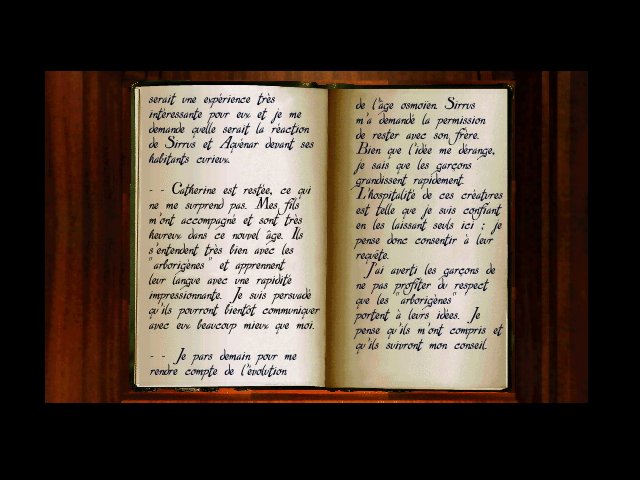 serait une expérience très
intéressante pour eux et je me
demande quelle serait la réaction
de Sirrus et Aquenar devant ses
habitants curieux.
- - Catherine est restée, ce qui
ne me surprend pas. Mes fils
m'ont accompagné et sont très
heureux dans ce nouvel âge. Ils
s'entendent très bien avec les
"arborigènes" et apprennent
leur langue avec une rapidité
impressionnante. Je suis persuadé
qu'ils pourront bientôt communiquer
avec eux beaucoup mieux que moi.
- - Je pars demain pour me
rendre compte de l'évolution
de l'âge osmoien. Sirrus
m'a demandé la permission
de rester avec son frère.
Bien que l'idée me dérange,
je sais que les garçons
grandissent rapidement.
L'hospitalité de ces créatures
est telle que je suis confiant
en les laissant seuls ici ; je
pense donc consentir à leur
requête.
J'ai averti les garçons de
ne pas profiter du respect
que les "arborigènes"
portent à leurs idées. Je
pense qu'ils m'ont compris et
qu'ils suivront mon conseil.